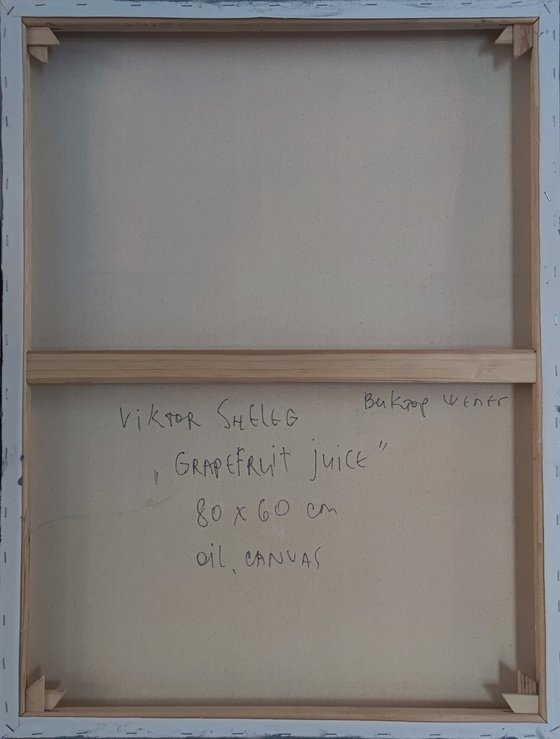 Виктор Шелег
Viktor SHELEG
„GRAPEFRUIT juiCE"
80 x 60 cm
oil, CANVAS